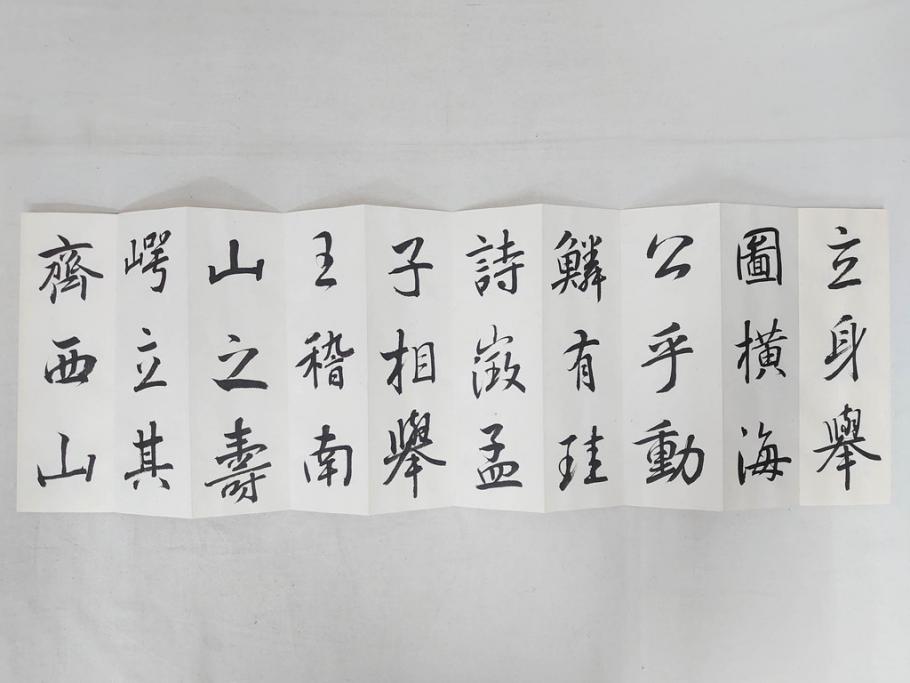 立身舉
圖橫海
公乎動
鱗有珪
詩徵孟
子相舉
王稽南
山之壽
崿立其
齊西山